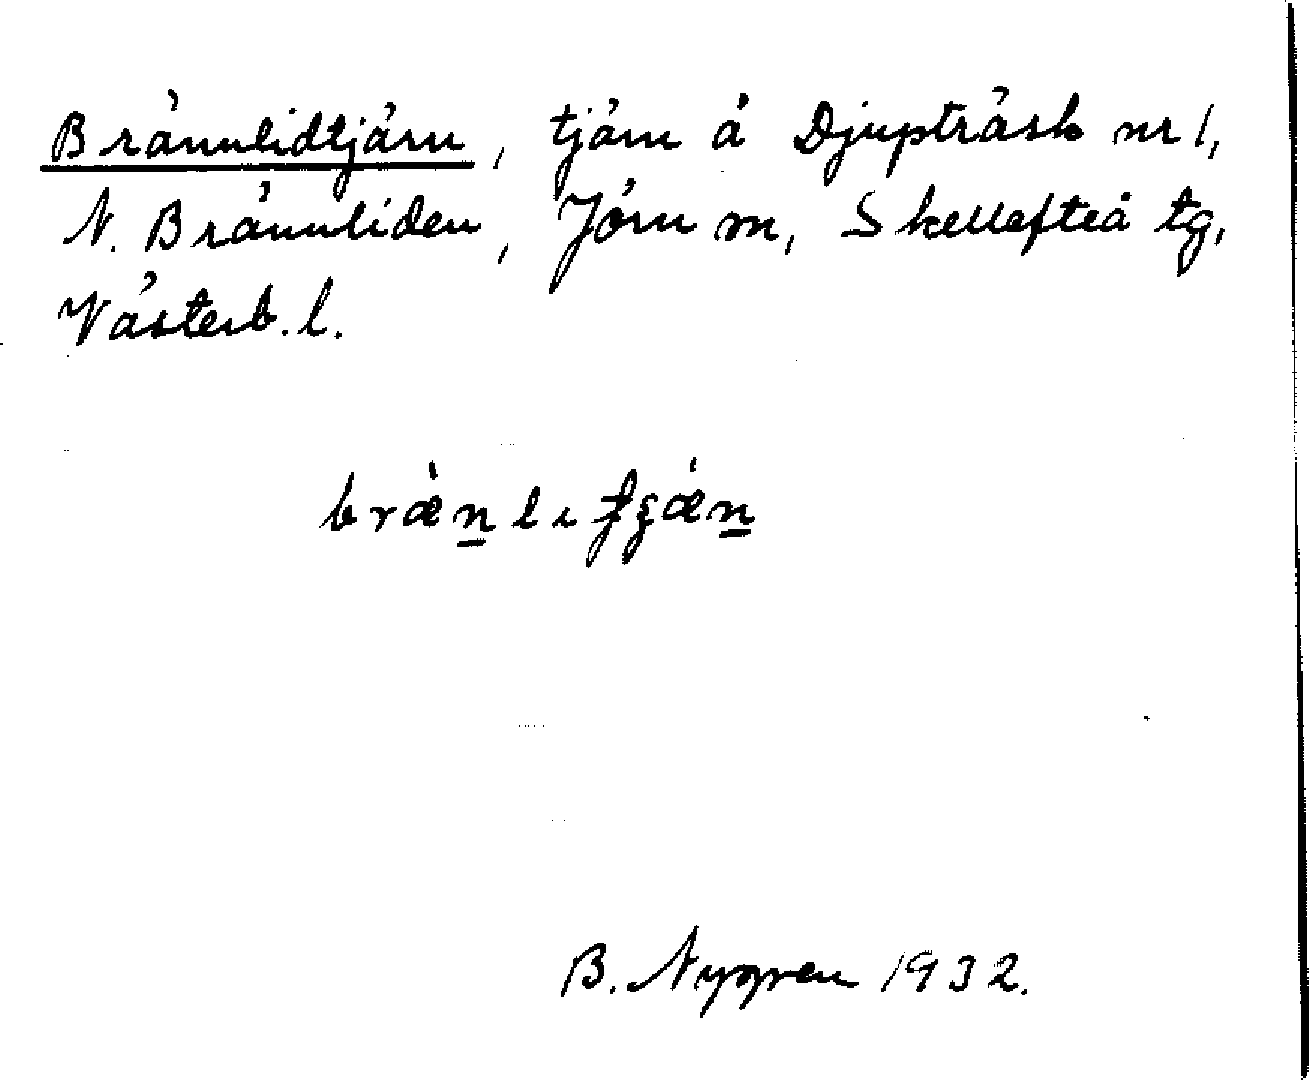 Brännlidtjärn, tjärn å Djupträsk nr 1,
N. Brännliden, Jörn sn, Skellefteå tg,
Västerb. l.
B. Nygren 1932.